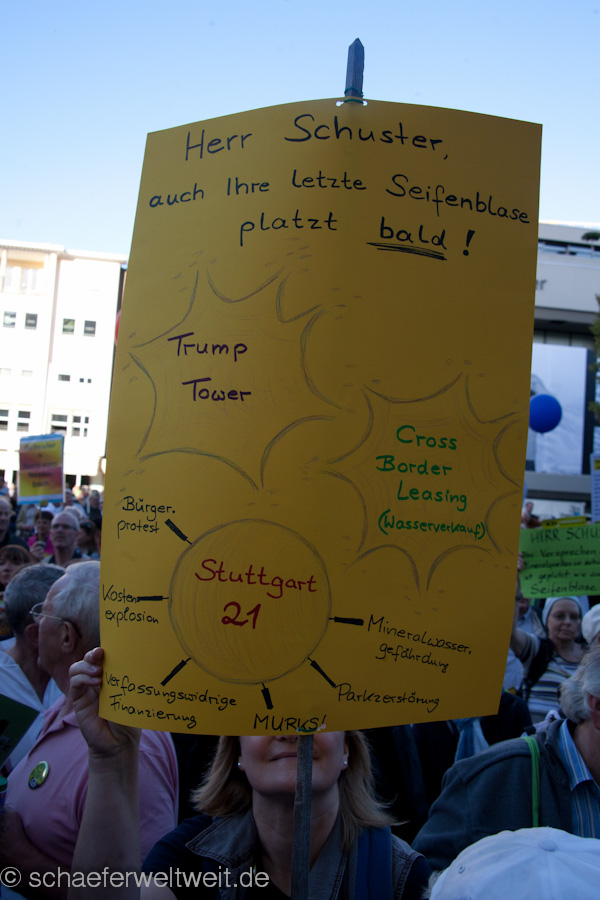 Herr Schuster,
auch Ihre letzte Seifenblase
platzt bald!
Trump
Tower
Cross
Border
Leasing
(Wasserverkauf)
Bürger-
protest
Stuttgart
21
Kosten
explosion
Mineralwasser-
gefährdung
Verfassungswidrige
Finanzierung
MURKS!
Parkzerstörung
HERR SCHUS
Versprechen
ist geplatzt wie
Seifenblase
© schaeferweltweit.de